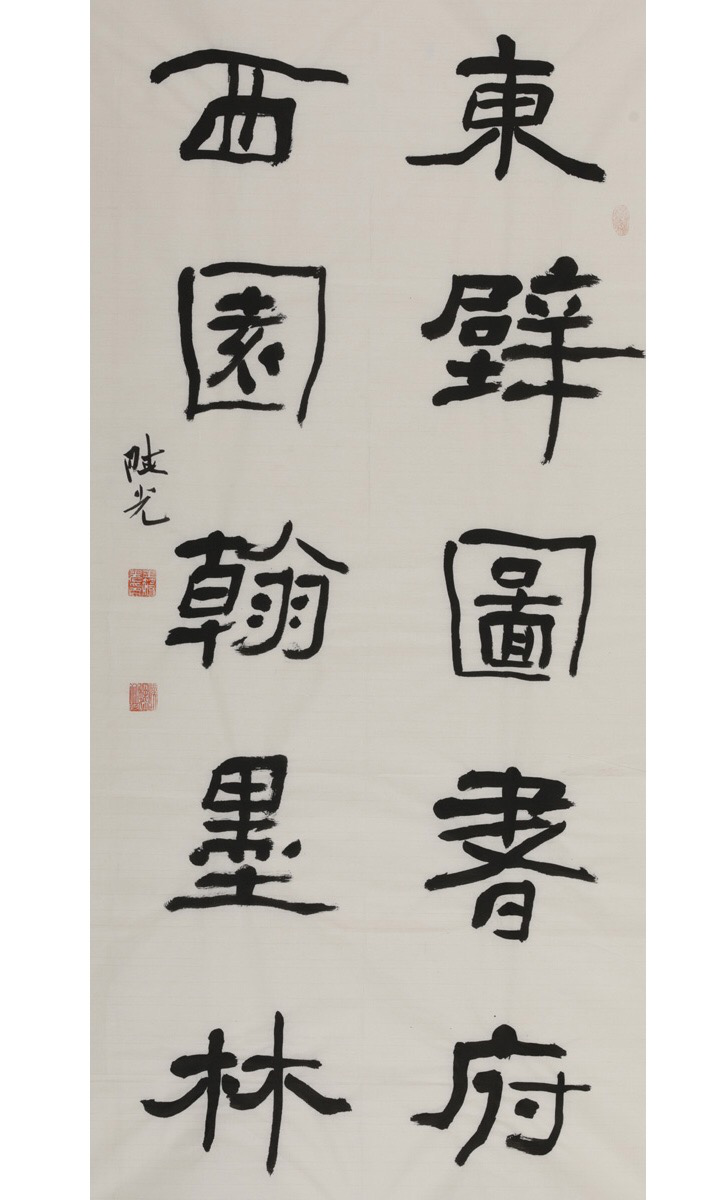 東壁圖書府
西園翰墨林
陡光